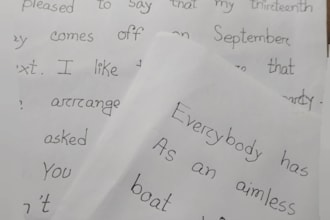 pleased to say that my thirteenth
comes off on September
I like that
arrange
asked
You
't
Everybody has
As an aimless
boat